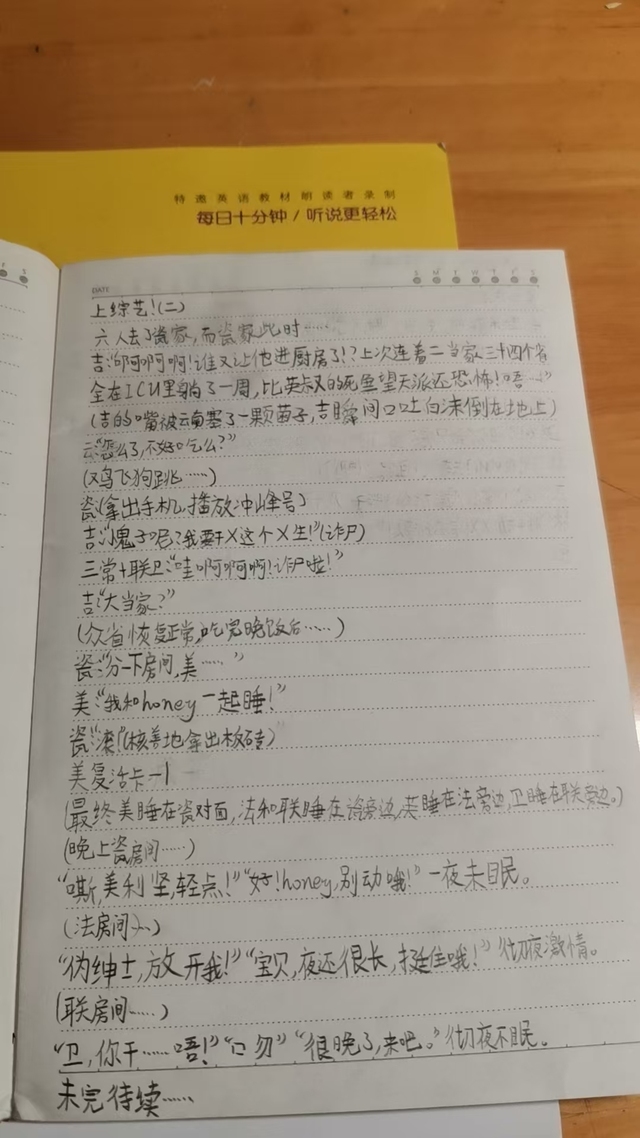 特邀英语教材朗读者录制
每日十分钟/听说更轻松
DATE
S M T W T F S
上综艺!(二)
六人去了瓷家,而瓷家此时……
吉:“啊啊啊啊!谁又让他进厨房了!?上次连着二当家三十四个省
全在ICU里躺了一周,比英叔的死亡望天派还恐怖!唔…”
(吉的嘴被云南塞了一颗菌子,吉瞬间口吐白沫倒在地上)
云:“怎么了,不好吃么?”
(鸡飞狗跳……)
瓷(拿出手机,播放冲峰号)
吉:“鬼子呢?我要干X这个X生!”(诈尸)
三常+联卫:“哇啊啊啊啊!诈尸啦!”
吉:“大当家?”
(众省恢复正常,吃完晚饭后……)
瓷:“分一下房间,美……”
美:“我和honey一起睡!”
瓷:“滚!”(核善地拿出板砖)
美复活卡-1
(最终美睡在瓷对面,法和联睡在瓷旁边,英睡在法旁边,卫睡在联旁边。)
(晚上瓷房间……)
“嘶,美利坚,轻点!”“好!honey,别动哦!”一夜未眠。
(法房间……)
“伪绅士,放开我!”“宝贝,夜还很长,挺住哦!”彻夜激情。
(联房间……)
“卫,你干……唔!”“口勿”“很晚了,来吧。”彻夜不眠。
未完待续……